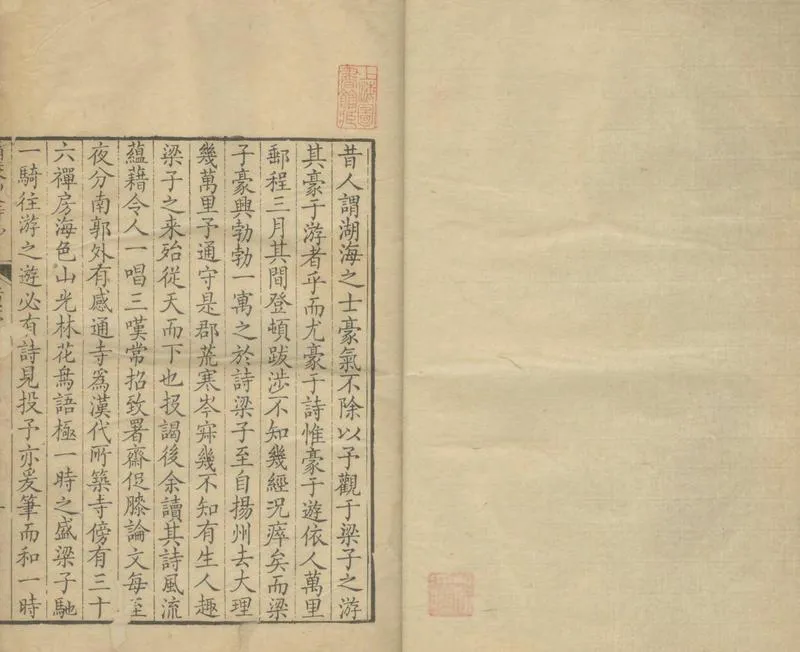 上海圖
書館所
昔人謂湖海之士豪氣不除以予觀于梁子之游
其豪于游者乎而尤豪于詩惟豪于遊依人萬里
郵程三月其間登頓跋涉不知幾經況瘁矣而梁
子豪興勃勃一寓之於詩梁子至自揚州去大理
幾萬里予通守是郡荒寒岑寂幾不知有生人趣
梁子之来殆從天而下也投謁後余讀其詩風流
蘊藉令人一唱三嘆常招致署齋促膝論文每至
夜分南郭外有感通寺爲漢代所築寺傍有三十
六禪房海色山光林花鳥語極一時之盛梁子馳
一騎往游之遊必有詩見投予亦爰筆而和一時